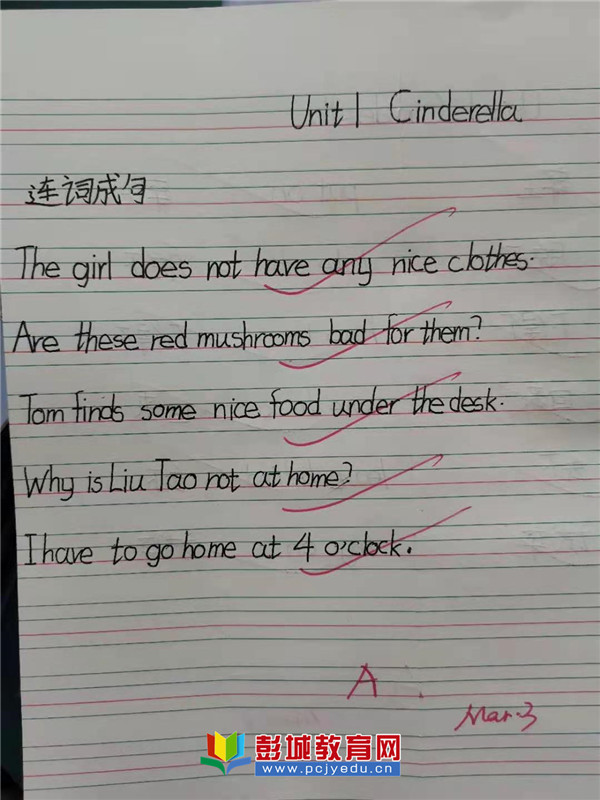 Unit 1 Cinderella
连词成句
The girl does not have any nice clothes.
Are these red mushrooms bad for them?
Tom finds some nice food under the desk.
Why is Liu Tao not at home?
I have to go home at 4 o'clock.
A
Mar. 3
彭城教育网
www.pcjyedu.cn